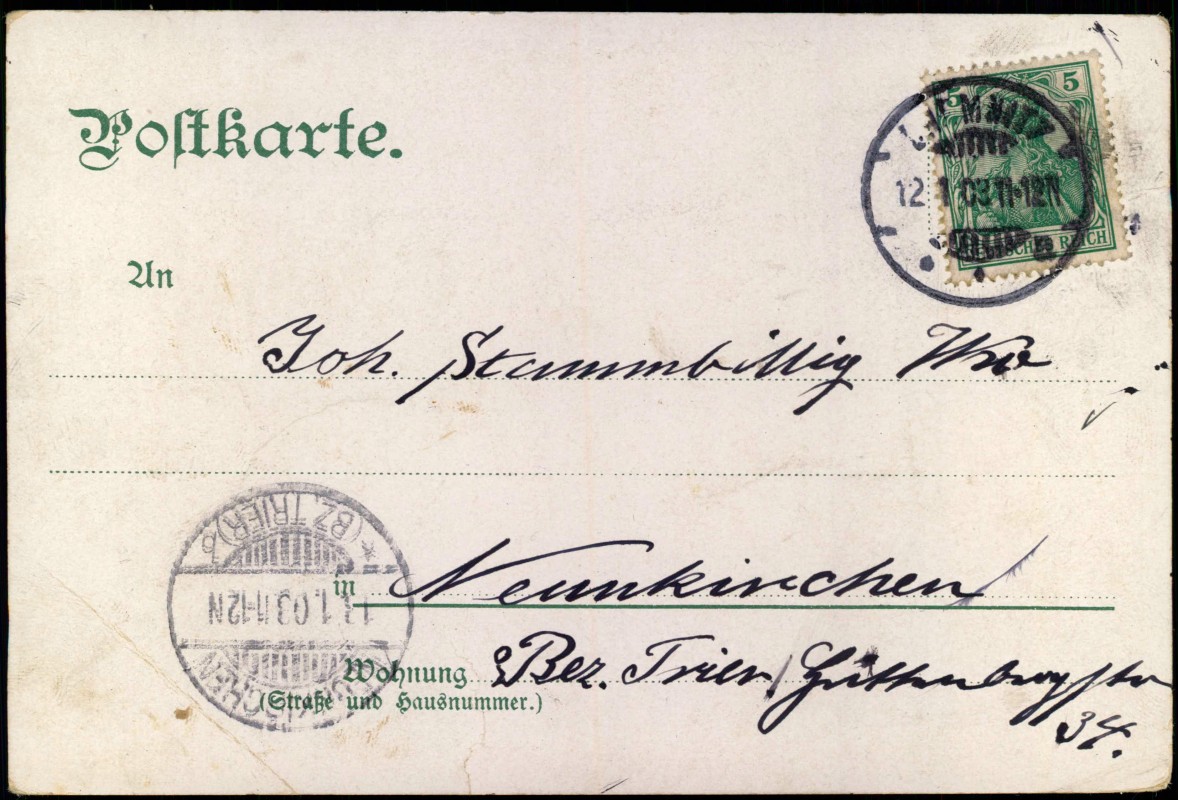 Postkarte.
5 5
CHEMNITZ
12 1 03 11-12N
DEUTSCHES REICH
An
Joh. Stammbillig Wwe
(BZ. TRIER) *
in Neunkirchen
1.03 11-12N
Wohnung Bez. Trier Guttenbergstr
(Straße und Hausnummer.)
34.